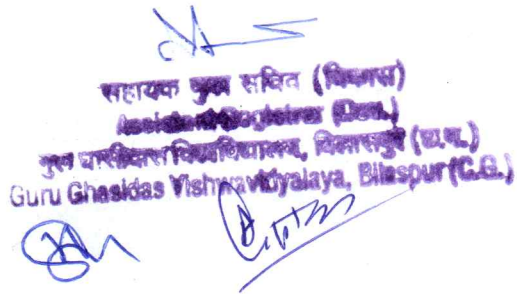 सहायक कुल सचिव (विकास)
Assistant Registrar (Dev.)
गुरु घासीदास विश्वविद्यालय, बिलासपुर (छ.ग.)
Guru Ghasidas Vishwavidyalaya, Bilaspur (C.G.)